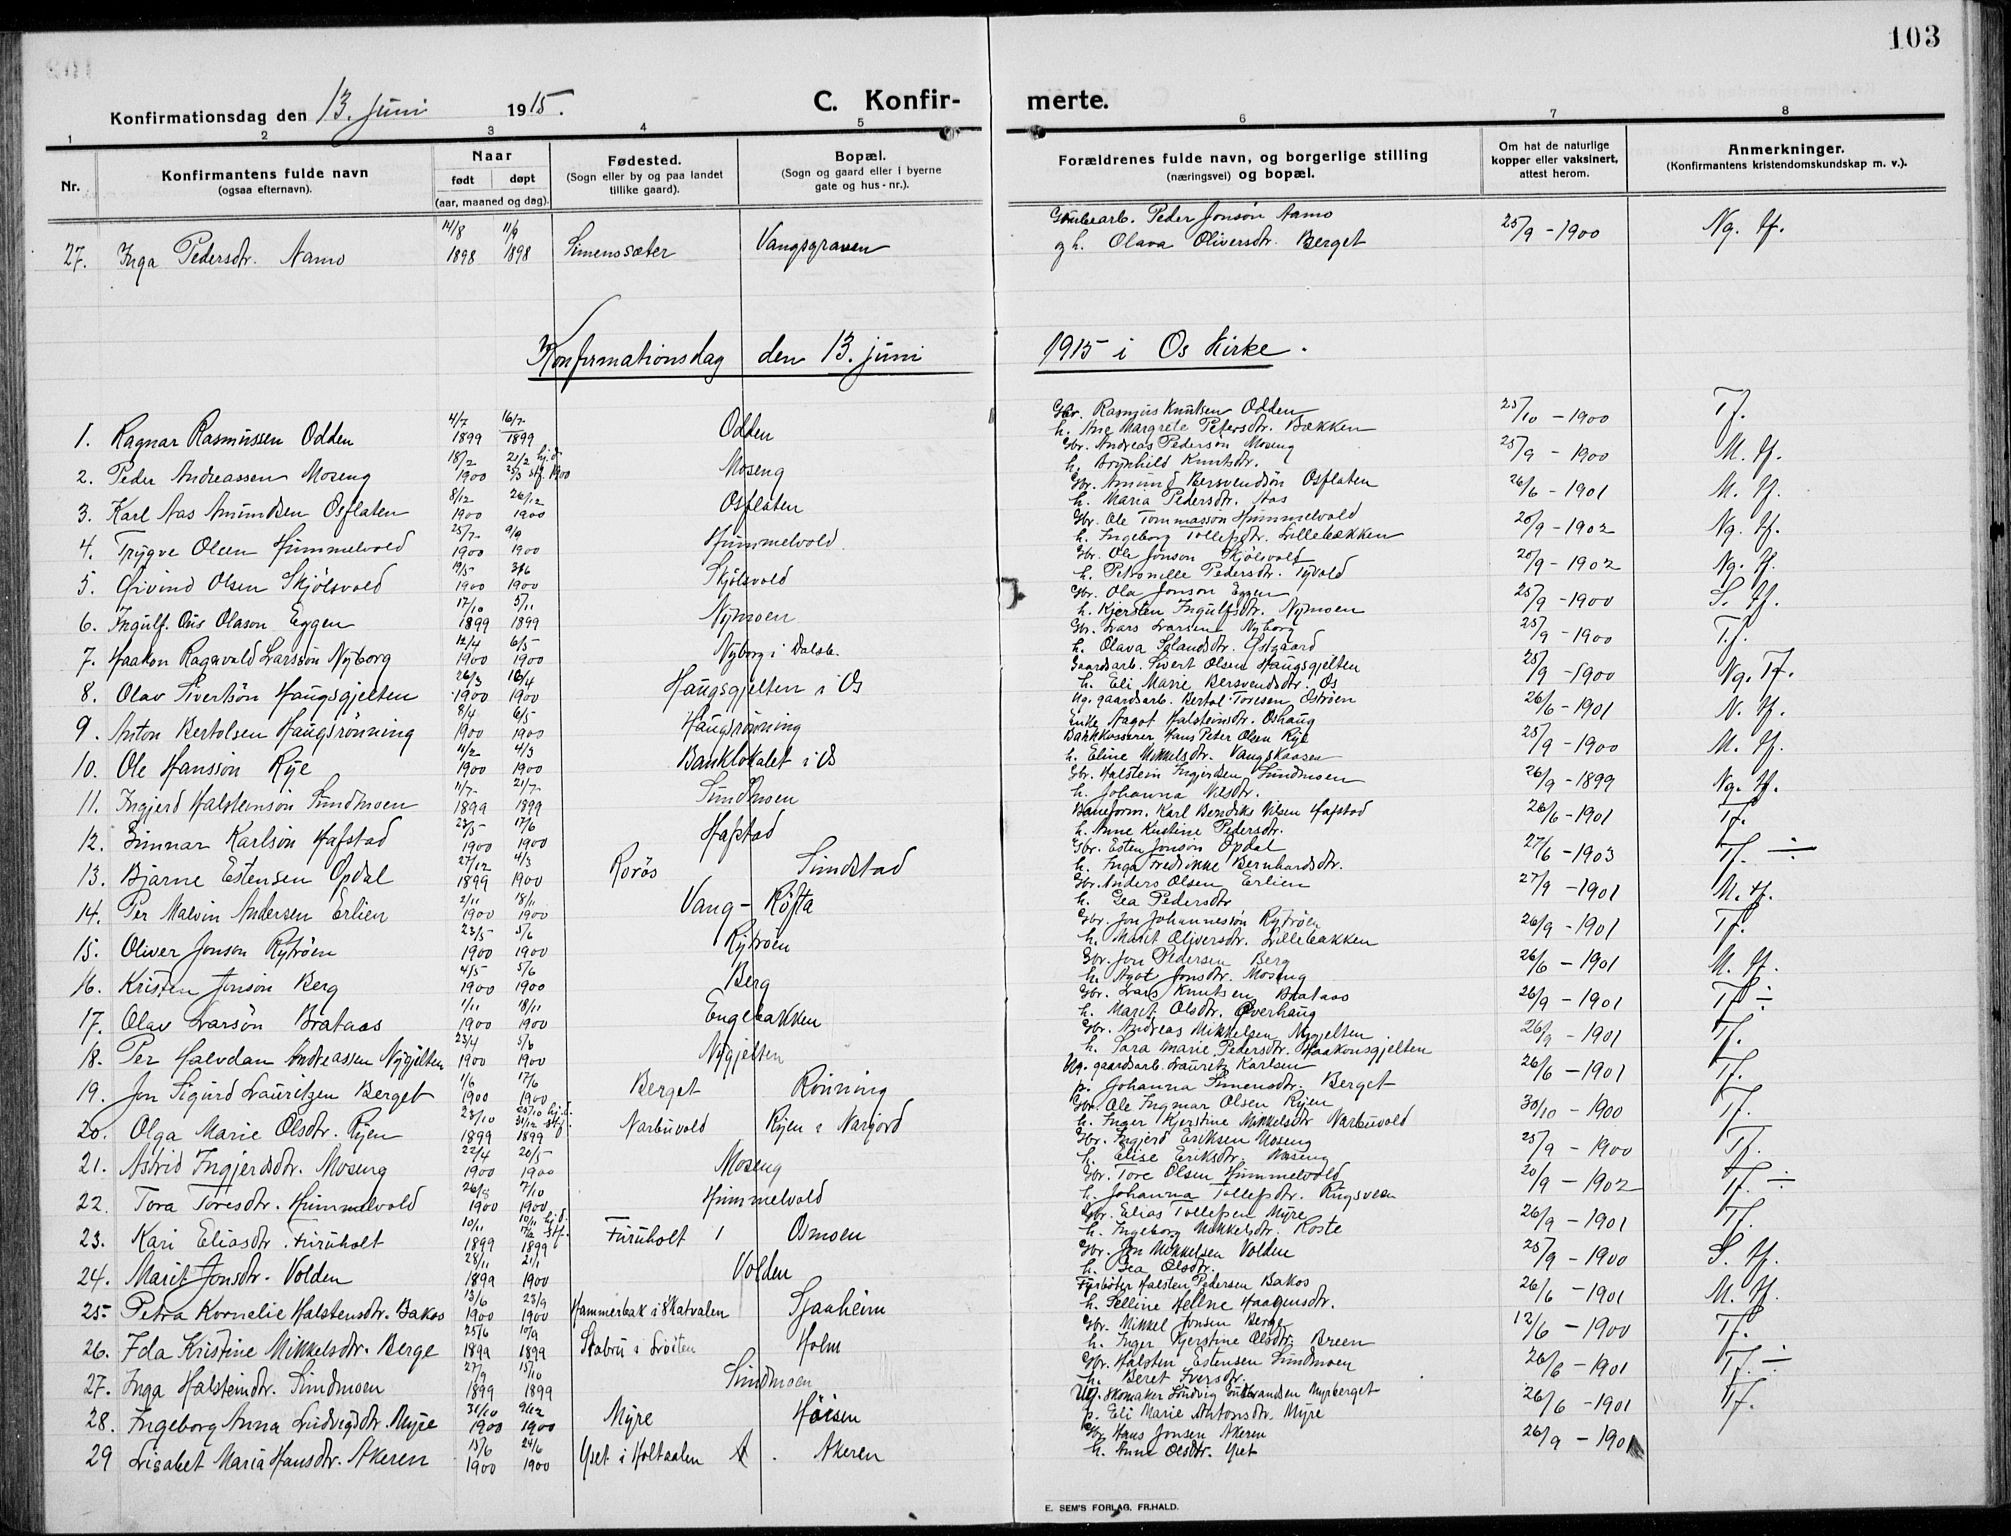 103
Konfirmationsdag den 13. juni 1915. C. Konfirmerte.
1 2 3 4 5 6 7 8
Nr. Konfirmantens fulde navn (ogsaa efternavn). Naar født døpt (aar, maaned og dag). Fødested. (Sogn eller by og paa landet tillike gaard). Bopæl. (Sogn og gaard eller i byerne gate og hus-nr.). Forældrenes fulde navn, og borgerlige stilling (næringsvei) og bopæl. Om hat de naturlige kopper eller vaksinert, attest herom. Anmerkninger. (Konfirmantens kristendomskundskap m. v.).
27. Inga Pedersdtr. Aamo 14/8 1898 11/9 1898 Simenssæter Vangsgraven Grubearb. Peder Jonsøn Aamo 25/9 - 1900 Ng. tf.
g h. Olava Oliversdtr. Berget
Konfirmationsdag den 13. juni 1915 i Os Kirke.
1. Ragnar Rasmussen Odden 4/7 1899 16/7 1899 Odden Gbr. Rasmus Knutsen Odden 25/10 - 1900 Tf.
h. Ane Margrete Petersdtr. Bækken
2. Peder Andreassen Moseng 18/2 1900 25/2 hj.d. 25/3 stf. 1900 Moseng Gbr. Andreas Pedersøn Moseng 25/9 - 1900 M. tf.
h. Brynhild Knutsdtr.
3. Karl Aas Amundsen Osflaten 8/12 1900 26/12 1900 Osflaten Gbr. Amund Bersvendsøn Osflaten 26/6 - 1901 M. tf.
h. Maria Pedersdtr. Aas
4. Trygve Olsen Hummelvold 25/7 1900 9/9 1900 Hummelvold Gbr. Ole Tommasson Hummelvold 20/9 - 1902 Ng. tf.
h. Ingeborg Tollefsdtr. Lillebækken
5. Øivind Olsen Skjølsvold 19/5 1900 3/6 1900 Skjølsvold Gbr. Ole Jonson Skjølsvold 20/9 - 1902 Ng. tf.
h. Petronelle Pedersdtr. Tyvold
6. Ingulf Olason Eggen 17/10 1899 5/11 1899 Nymoen Gbr. Ola Jonson Eggen 25/9 - 1900 S. tf.
h. Kjersten Ingulfsdtr. Nymoen
7. Haakon Ragnvald Larsson Nyborg 12/4 1900 6/5 1900 Nyborg i Dalsb. Gbr. Lars Larsen Nyborg 25/9 - 1900 Tf.
h. Olava Østgaard
8. Olav Sivertsøn Haugsgjelten 26/3 1900 16/4 1900 Haugsgjelten i Os Gaardsarb. Sivert Olsen Haugsgjelten 25/9 - 1900 Ng. Tf.
h. Eli Marie Bersvendsdtr. Os
9. Anton Bertolsen Haugsrønning 8/4 1900 6/5 1900 Haugsrønning Ug. gaardsarb. Bertol Toresen Østrøen 26/6 - 1901 N. tf.
Enke Aagot Halsteinsdtr. Oshaug
10. Ole Hansson Rye 11/2 1900 4/3 1900 Banklokalet i Os Bankkasserer Hans Peter Olsen Rye 25/9 - 1900 M. tf.
h. Eline Mikkelsdtr. Vangskaasen
11. Ingjerd Halsteinsøn Sundmoen 11/7 1899 21/7 1899 Sundmoen Gbr. Halstein Ingjerdsen Sundmoen 26/9 - 1899 Ng. tf.
h. Johanna Nilsdtr.
12. Gunnar Karlsøn Hafstad 23/5 1900 17/6 1900 Hafstad Baneform. Karl Bendiks Nilsen Hafstad 26/6 - 1901 Tf.
h. Anne Kristine Pedersdtr.
13. Bjarne Estensen Opdal 27/12 1899 4/3 1900 Rørøs Sundstad Gbr. Esten Jonsøn Opdal 27/6 - 1903 Tf. ÷
h. Inga Fredrikke Bernhardsdtr.
14. Per Malvin Andersen Erlien 2/11 1900 18/11 1900 Vang - Røfta Gbr. Anders Olsen Erlien 27/9 - 1901 M. tf.
h. Gea Pedersdtr
15. Oliver Jonson Rytrøen 23/5 1900 5/6 1900 Rytrøen Gbr. Jon Johannessøn Rytrøen 26/9 - 1901 Tf.
h. Marit Oliversdtr. Lillebækken
16. Kristen Jonsøn Berg 4/5 1900 5/6 1900 Berg Gbr. Jon Pedersen Berg 26/6 - 1901 M. tf.
h. Agot Jonsdtr. Moseng
17. Olav Larsøn Brataas 1/11 1900 18/11 1900 Engebakken Gbr. Lars Knutsen Brataas 26/9 - 1901 Tf ÷
h. Marit Olsdtr. Øverhaug
18. Per Halvdan Andreassen Nygjelten 23/4 1900 5/6 1900 Nygjelten Gbr. Andreas Mikkelsen Nygjelten 26/9 - 1901 Tf.
h. Sara Marie Pedersdtr. Haakonsgjelten
19. Jon Sigurd Lauritzen Berget 1/6 1900 17/6 1900 Berget Rønning Ug. gaardsarb. Lauritz Karlsen 26/6 - 1901 Tf.
p. Johanna Simensdtr. Berget
20. Olga Marie Olsdtr. Ryen 23/10 1899 25/10 hj.d. 31/12 stf. 1899 Narbuvold Ryen i Narjord Gbr. Ole Ingmar Olsen Ryen 30/10 - 1900 Tf.
h. Inger Kjerstine Mikkelsdtr Narbuvold
21. Astrid Ingjerdsdtr. Moseng 22/4 1900 20/5 1900 Moseng Gbr. Ingjerd Eriksen Moseng 25/9 - 1900 Tf.
h. Elise Eriksdtr. Moseng
22. Tora Toresdtr. Hummelvold 26/8 1900 7/10 1900 Hummelvold Gbr. Tore Olsen Hummelvold 20/9 - 1902 Tf. ÷
h. Johanna Tollefsdtr. Ringsveen
23. Kari Eliasdtr. Furuholt 10/11 1899 10/11 hj.d. 17/12 stf. 1899 Furuholt Osmoen Gbr. Elias Tollefsen Myre 26/9 - 1901 Tf.
h. Ingeborg Mikkelsdtr. Røste
24. Marit Jonsdtr. Volden 28/11 1899 21/1 1900 Volden Gbr. Jon Mikkelsen Volden 25/9 - 1900 S. tf.
h. Gea Olsdtr.
25. Petra Kornelie Halstensdtr. Bakos 13/6 1900 23/9 1900 Hammerbak i Skatvalen Sjaaheim Fyrbøter Halsten Pedersen Bakos 26/6 - 1901 M. tf.
h. Pelline Helene Haagensdtr.
26. Ida Kristine Mikkelsdtr. Berge 25/6 1899 10/9 1899 Stabru i Løiten Holm Gbr. Mikkel Jonsen Berge 12/6 - 1900 Tf.
h. Inger Kjerstine Olsdtr. Breen
27. Inga Halsteindtr. Sundmoen 27/9 1899 15/10 1899 Sundmoen Gbr. Halsten Estensen Sundmoen 26/6 - 1901 Tf. ÷
h. Beret Iversdtr.
28. Ingeborg Anna Ludvigsdtr. Myre 31/10 1900 9/12 1900 Myre Høisen Ug. Skomaker Ludvig Gudbrandsen Myrberget 26/6 - 1901 Tf.
p. Eli Marie Antonsdtr. Myre
29 Lisabet Maria Hansdtr. Akeren 15/6 1900 24/6 1900 Yset i Holtaalen Akeren Gbr Hans Jonsen Akeren 26/9 - 1901
h. Anne Olsdtr. Yset
E. SEM'S FORLAG, FR.HALD.